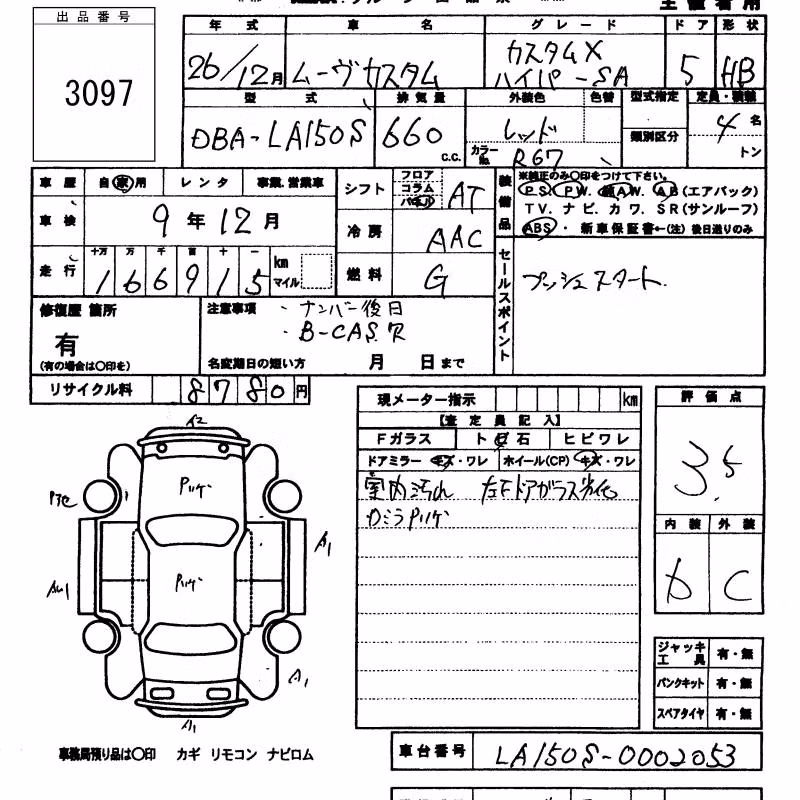 出品番号
3097
年式 車名 グレード ドア 形状
26/12月 ムーヴカスタム カスタムX ハイパーSA 5 HB
型式 排気量 外装色 色替 型式指定 定員・積載
DBA-LA150S 660 c.c. レッド 類別区分 4名
カラーNo. R67 トン
車歴 自家用 レンタ 事業.営業車 シフト フロア コラム パネル AT
装備品 ※純正のみ○印をつけて下さい。
PS PW. AW. AB(エアバック)
TV. ナビ. カワ. SR(サンルーフ)
ABS・ 新車保証書←(注)後日送りのみ
車検 9年12月
冷房 AAC
走行 十万 万 千 百 十 一
166915 km マイル
燃料 G
セールスポイント プッシュスタート
修復歴 箇所
有
(有の場合は○印を)
注意事項 ・ナンバー後日
・B-CASR
名変期日の短い方 月 日まで
リサイクル料 8780円
現メーター指示 km
【査定員記入】
Fガラス ト 石 ヒビワレ
ドアミラー キズ・ワレ ホイール(CP) キズ・ワレ
室内汚れ 左Fドアガラス劣化
カミラPハゲ
評価点
3.5
内装 外装
D C
A2
Pハゲ
Pハゲ
A1
A1
A1
ジャッキ工具 有・無
パンクキット 有・無
スペアタイヤ 有・無
事務局預り品は○印 カギ リモコン ナビロム
車台番号 LA150S-0002053